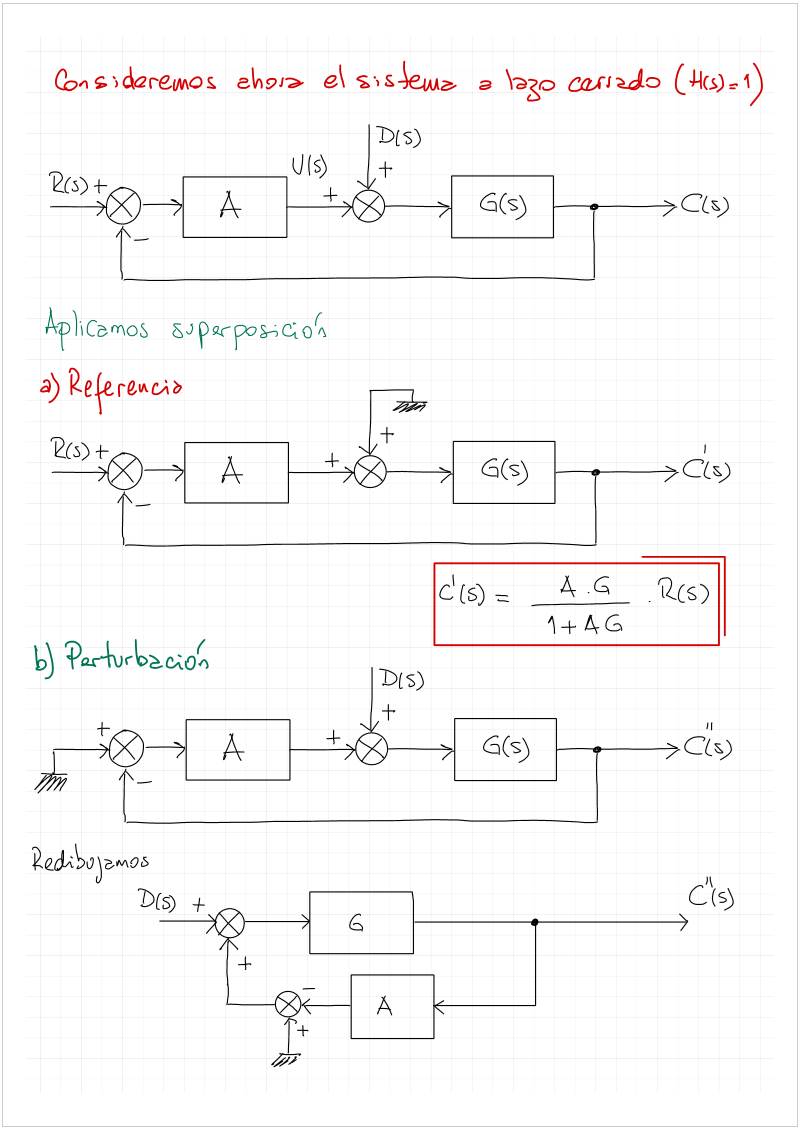 Consideremos ahora el sistema a lazo cerrado (H(s)=1)
D(s)
R(s) + A U(s) + + G(s) C(s)
−
Aplicamos superposición
a) Referencia
+
R(s) + A + G(s) C'(s)
−
C'(s) = A . G / 1 + A G . R(s)
b) Perturbación
D(s)
+ A + + G(s) C''(s)
−
Redibujamos
D(s) + G C''(s)
+
− A
+